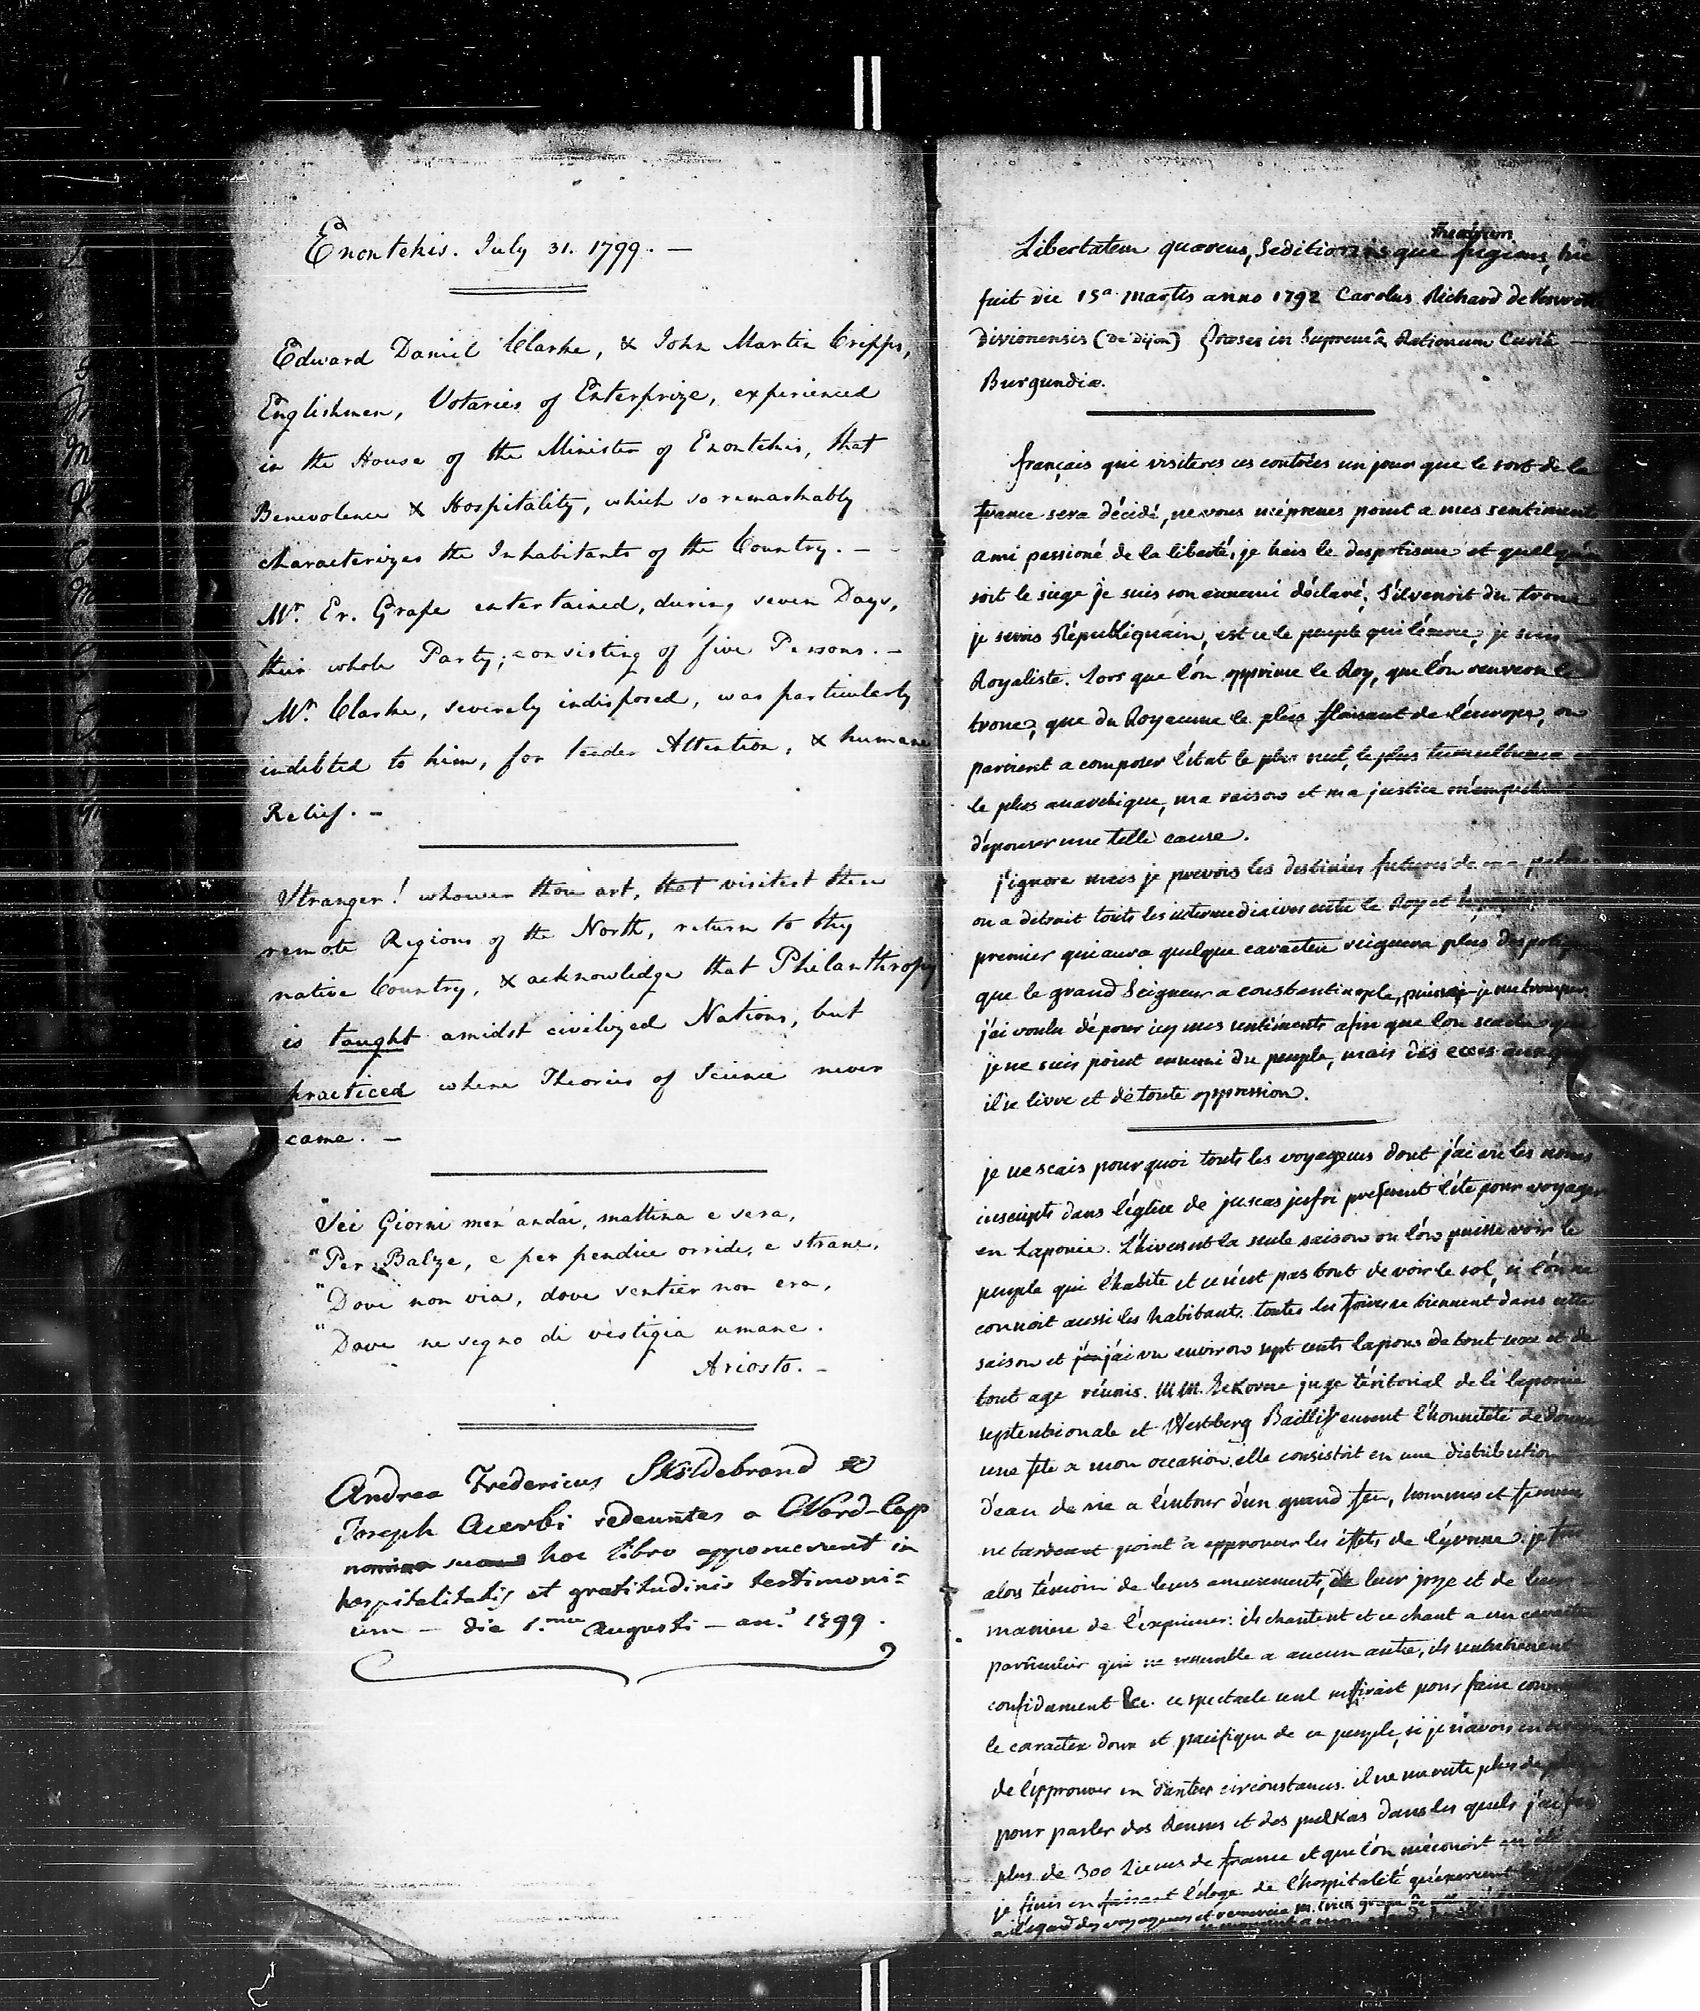 Enontekis. July 31. 1799. —
Edward Daniel Clarke, & John Martin Cripps,
Englishmen, Votaries of Enterprize, experienced
in the House of the Minister of Enontekis, that
Benevolence & Hospitality, which so remarkably
characterizes the Inhabitants of the Country. —
Mr. Er. Grape entertained, during seven Days,
their whole Party; consisting of five Persons. —
Mr. Clarke, severely indisposed, was particularly
indebted to him, for tender Attention, & humane
Relief. —
Stranger! whoever thou art, that visitest these
remote Regions of the North, return to thy
native Country, & acknowledge that Philanthropy
is taught amidst civilized Nations, but
practiced where Theories of Science never
came. —
"Sei Giorni men' andai, mattina e sera,
"Per Balze, e per pendice orride, e strane,
"Dove non via, dove sentier non era,
"Dove ne segno di vestigia umane.
Ariosto. —
Andrea Fredericus Skiöldebrand &
Joseph Acerbi redeuntes a Nord-Capp
nomina sua hoc libro apposuerunt in
hospitalitatis et gratitudinis testimoni=
um — die 1.ma Augusti — an.° 1799.
theatrum
Libertatem quaerens, Seditionis que fugiens, hic
fuit die 15a Martis anno 1792 Carolus Richard de
divionensis (de Dijon) in Suprema Rationum Curia
Burgundiae.
français qui visiteres ces contrées un jour que le sort de la
france sera décidé, ne vous méprenes point a mes sentiment
ami passioné de la liberté, je hais le despotisme et quelqu'en
soit le siege je suis son ennemi déclaré; S'il venoit du trone
je serois Républiquain, est ce le peuple qui l'exerce, je suis
Royaliste. lors que l'on opprime le Roy, que l'on renverse le
trone, que du Royaume le plus florissant de l'europe, on
parvient a composer l'état le plus nul, le plus tumultueux
le plus anarchique, ma raison et ma justice m'empechent
d'épouser une telle cause.
j'ignore mais je prevois les destinées futures de ma
on a detruit touts les intermediaires entre le Roy et le
premier qui aura quelque caractere reignera plus despotiq
que le grand Seigneur a constantinople, puissai-je me tromper.
j'ai voulu déposer icy mes sentiments afin que l'on scache que
je ne suis point ennemi du peuple, mais des exces auxq
il se livre et de toute oppression.
je ne scais pour quoi touts les voyageurs dont j'ai vu les noms
inscripts dans l'église de jucasjerfvi preferent l'été pour voyager
en Laponie. L'hiver est la seule saison ou l'on puisse voir le
peuple qui l'habite et ce n'est pas tout de voir le sol, si l'on ne
connoit aussi les habitants. toutes les foires se tiennent dans cette
saison et j'ai vu environ sept cents lapons de tout sexe et de
tout age réunis. MM. Hekorne juge téritorial de la laponie
septentrionale et Westberg Baillif eurent l'honnêteté de donner
une fete a mon occasion, elle consistoit en une distribution
d'eau de vie a l'entour d'un grand feu, hommes et femmes
ne tarderent point a epprouver les effets de l'yvresse. je fus
alors témoin de leurs amusements, de leur joye et de leur
maniere de l'exprimer: ils chantent et ce chant a un caractere
particulier qui ne resemble a aucun autre, ils
confidament &c. ce spectacle seul suffirait pour faire
le caractere doux et pacifique de ce peuple, si je n'avois eu
de l'epprouver en d'autres circonstances. il ne me reste plus de
pour parler des Rennes et des pulkas dans les quels j'ai fait
plus de 300 Lieues de france et que l'on méconoit
je finis en faisant l'éloge de l'hospitalité qu'exercent
a l'egard des voyageurs et remercie M. Erick Grape